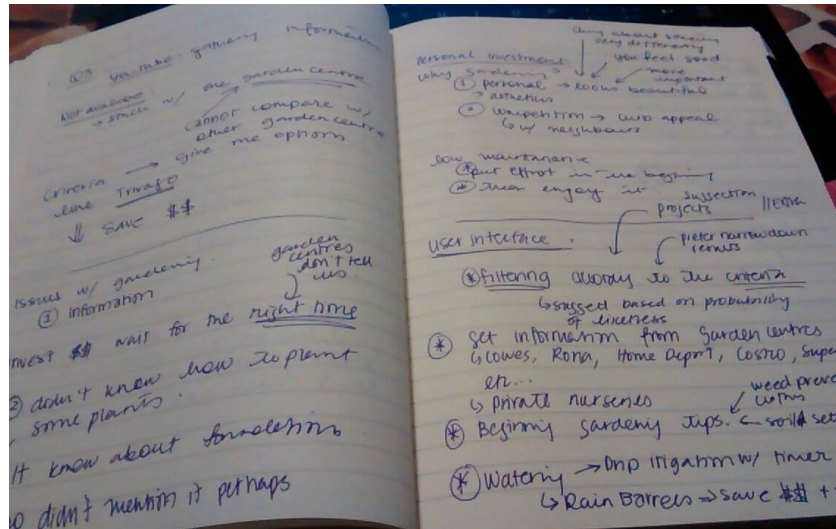 Youtube - gardening information
Not available
→ stuck w/ one garden centre
cannot compare w/
other garden centre
criteria → give me options
like Trivago
⇓ save $$
garden
centres
don't tell
us.
issues w/ gardening.
① information
invest $$ wait for the right time
② didn't know how to plant
some plants.
know about
didn't mention it perhaps
personal investment
very different
you feel good
more
important
why gardening?
① personal → looks beautiful
→ aesthetics
competition → curb appeal
↳ w/ neighbours
low maintenance
put effort in the beginning
then enjoy it
projects
user interface.
prefer narrow down
results
* filtering according to the criteria
↳ suggest based on probability
of likeness
* get information from garden centres
↳ Lowes, Rona, Home Depot, Costco, Super
etc...
↳ private nurseries
weed
* Beginning gardening tips. ← soil set
* Watering → Drip irrigation w/ timer
↳ Rain Barrels ⇒ save $$ +